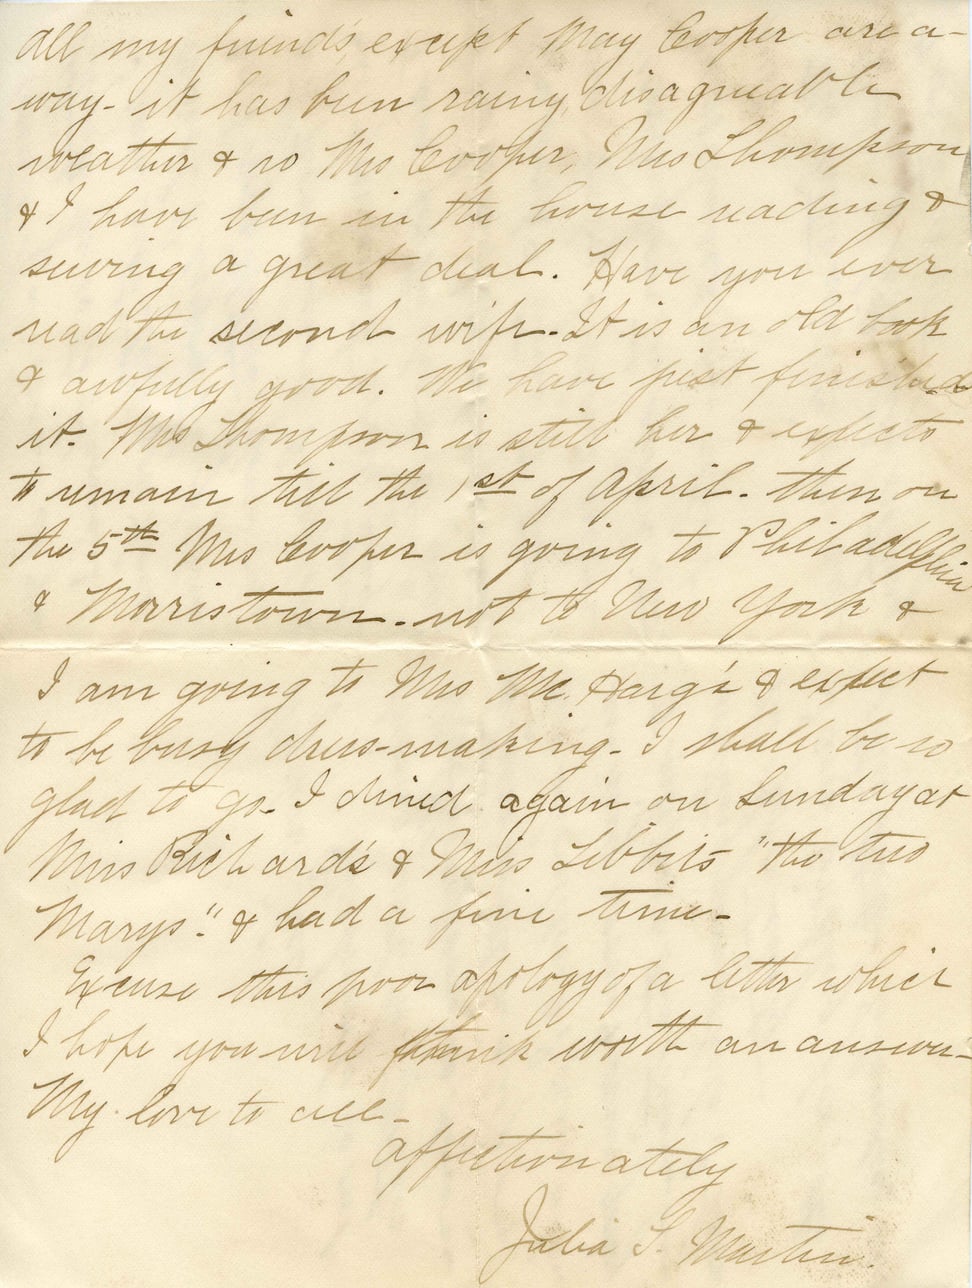 All my friends, except May Cooper are a-
way- it has been rainy, disagreeable
weather & so Mrs Cooper, Mrs Thompson
& I have been in the house reading &
sewing a great deal. Have you ever
read the second wife. It is an old book
& awfully good. We have just finished
it. Mrs Thompson is still her & expects
to remain till the 1st of April. then on
the 5th Mrs Cooper is going to Philadelphia
& Morristown. not to New York &
I am going to Mrs Mc. Harg's & expect
to be busy dress-making- I shall be so
glad to go- I dined again on Sunday at
Miss Richard's & Miss Tibbits "the two
Marys". & had a fine time-
Excuse this poor apology of a letter which
I hope you will think worth an answer-
My love to all-
affectionately
Julia S. Martin.